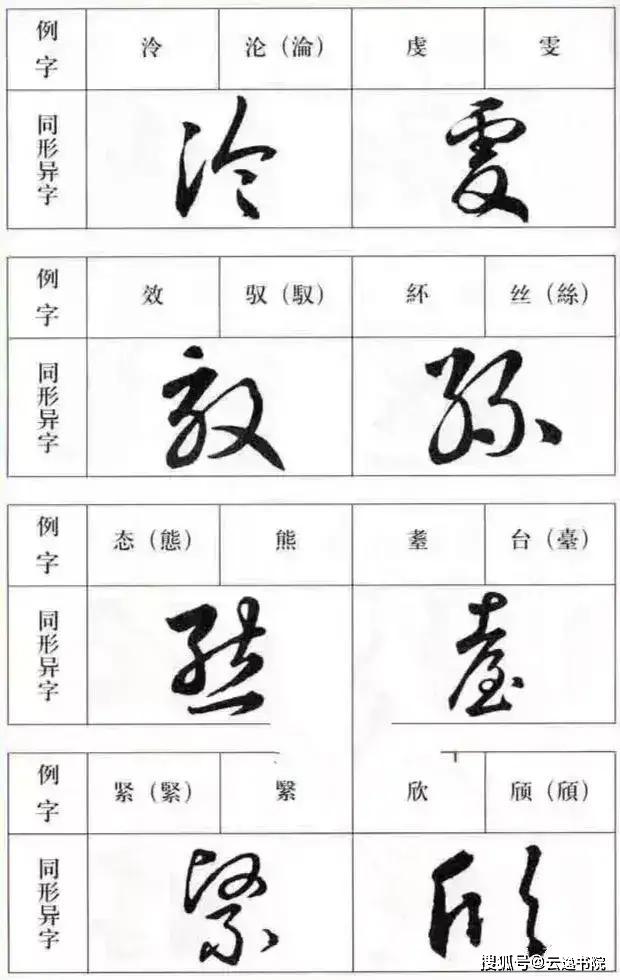 例字 泠 沦（淪） 虔 雯
同形异字
例字 效 驭（馭） 紑 丝（絲）
同形异字
例字 态（態） 熊 耋 台（臺）
同形异字
例字 紧（緊） 繄 欣 颀（頎）
同形异字
搜狐号@云逸书院